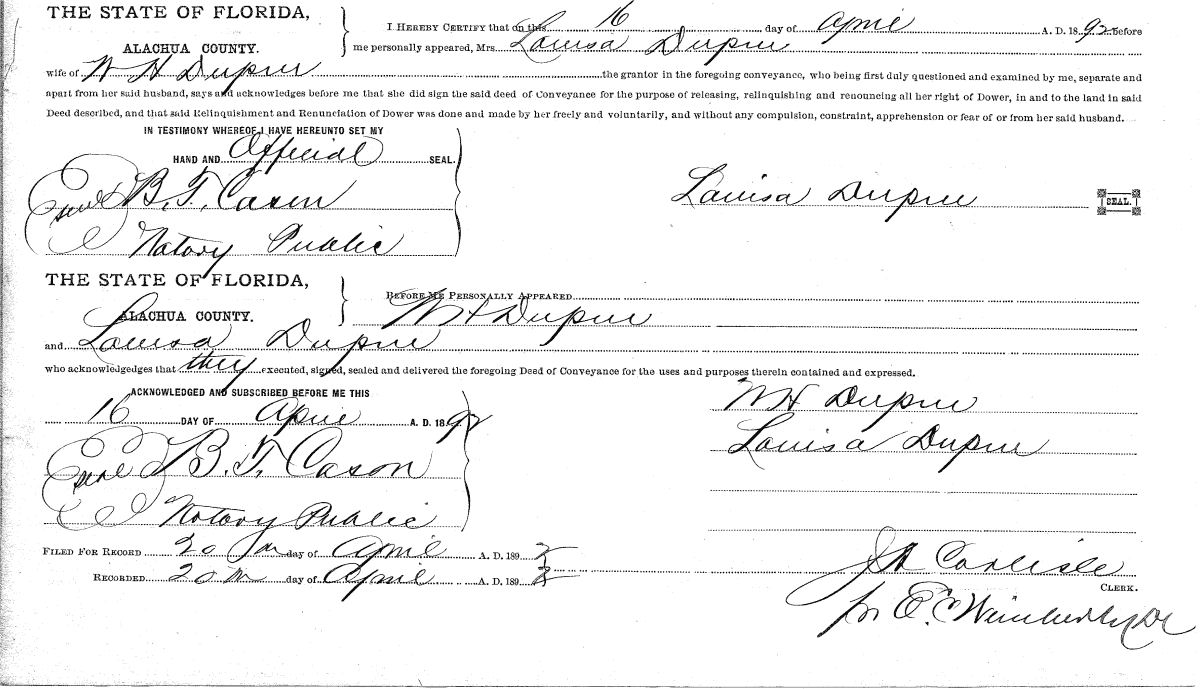 THE STATE OF FLORIDA,
ALACHUA COUNTY.
I HEREBY CERTIFY that on this 16 day of April A. D. 1892 before
me personally appeared, Mrs. Louisa Dupree
wife of W H Dupree the grantor in the foregoing conveyance, who being first duly questioned and examined by me, separate and
apart from her said husband, says and acknowledges before me that she did sign the said deed of Conveyance for the purpose of releasing, relinquishing and renouncing all her right of Dower, in and to the land in said
Deed described, and that said Relinquishment and Renunciation of Dower was done and made by her freely and voluntarily, and without any compulsion, constraint, apprehension or fear of or from her said husband.
IN TESTIMONY WHEREOF, I HAVE HEREUNTO SET MY
HAND AND Official SEAL.
Seal B. T. Cason
Notary Public
Louisa Dupree SEAL.
THE STATE OF FLORIDA,
ALACHUA COUNTY.
BEFORE ME PERSONALLY APPEARED
W H Dupree
and Louisa Dupree
who acknowledgedges that they executed, signed, sealed and delivered the foregoing Deed of Conveyance for the uses and purposes therein contained and expressed.
ACKNOWLEDGED AND SUBSCRIBED BEFORE ME THIS
16 DAY OF April A. D. 1892
Seal B. T. Cason
Notary Public
W H Dupree
Louisa Dupree
FILED FOR RECORD 20 day of April A. D. 1892
RECORDED 20 day of April A. D. 1892
Carlisle
CLERK.